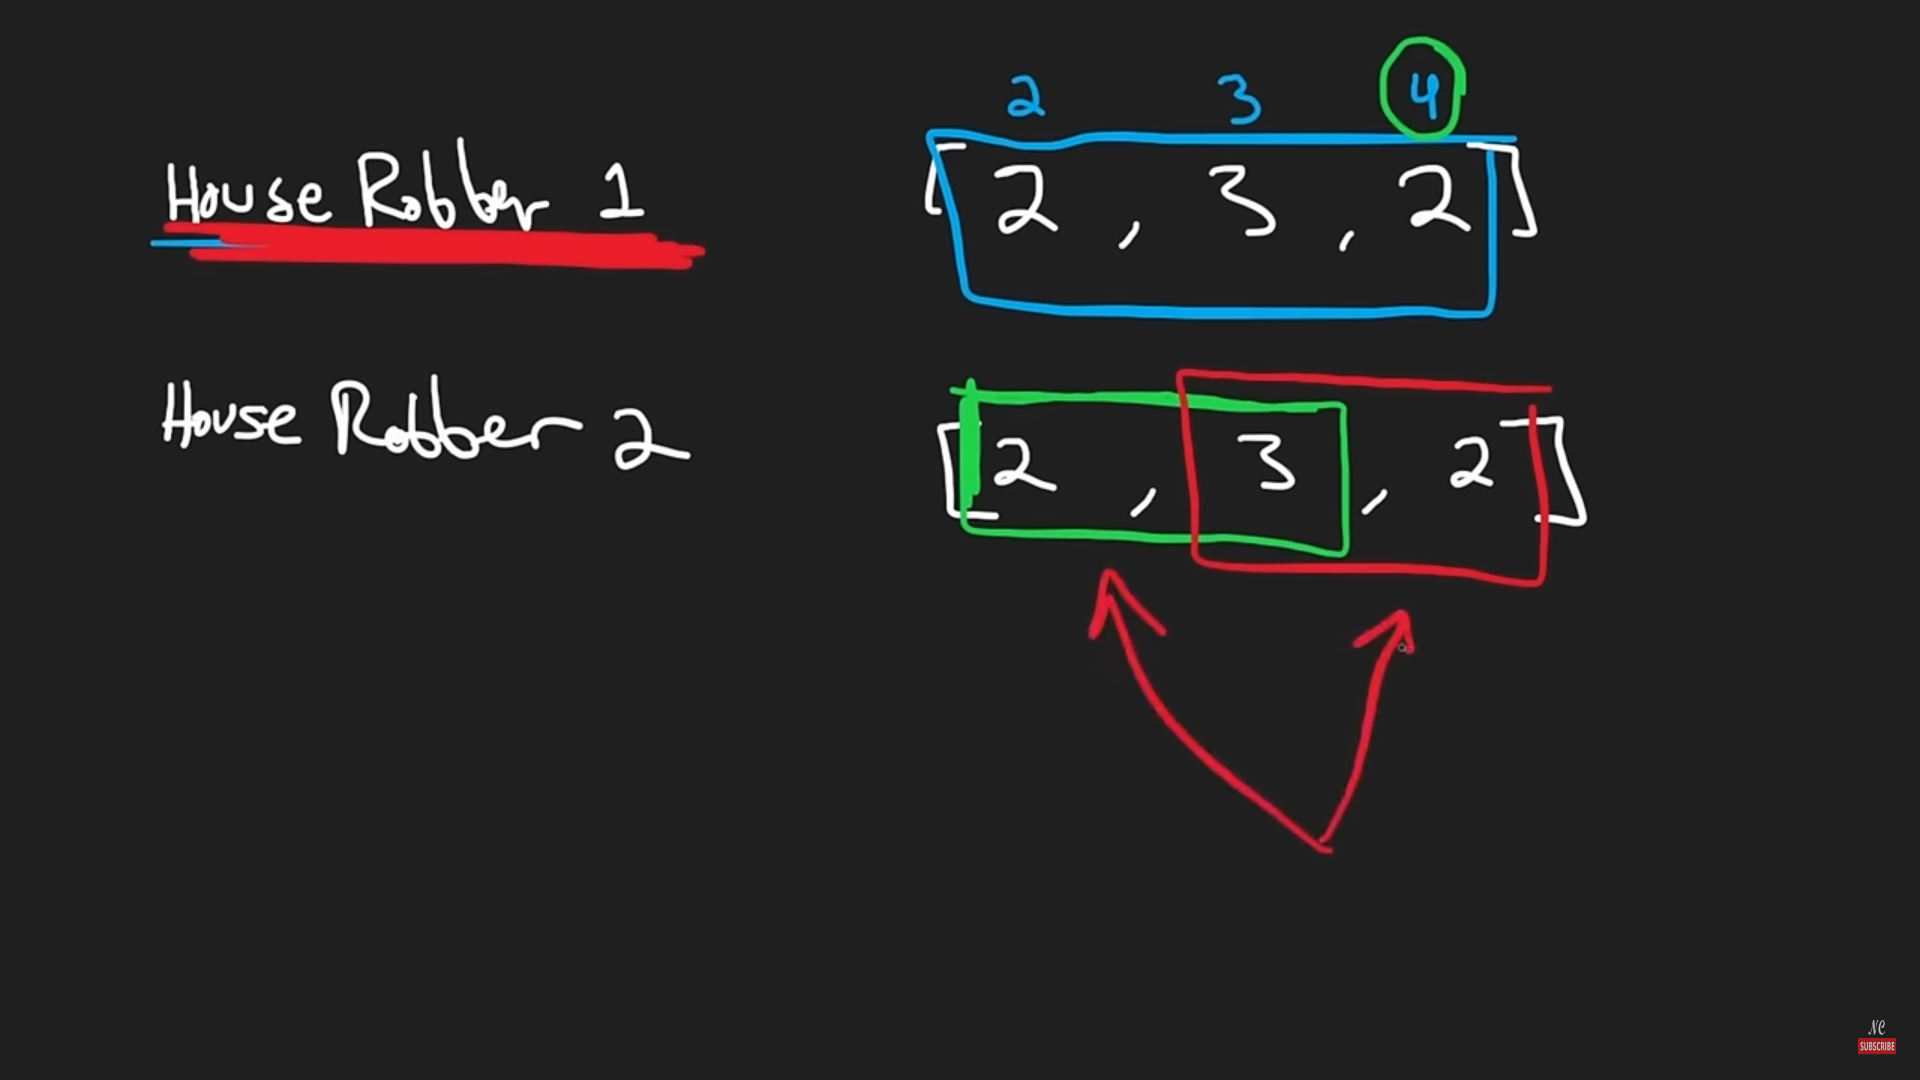 2 3 4
House Robber 1 [2, 3, 2]
House Robber 2 [2, 3, 2]
NC
SUBSCRIBE